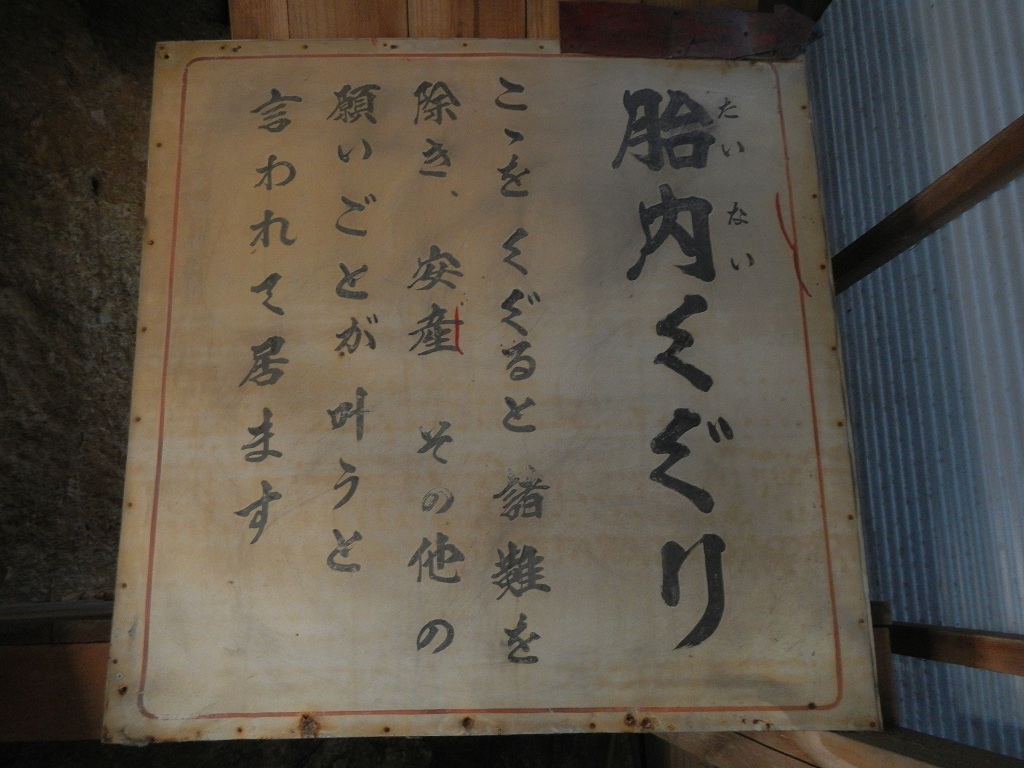 胎内くぐり
たいない
こゝをくぐると諸難を
除き、安産その他の
願いごとが叶うと
言われて居ます